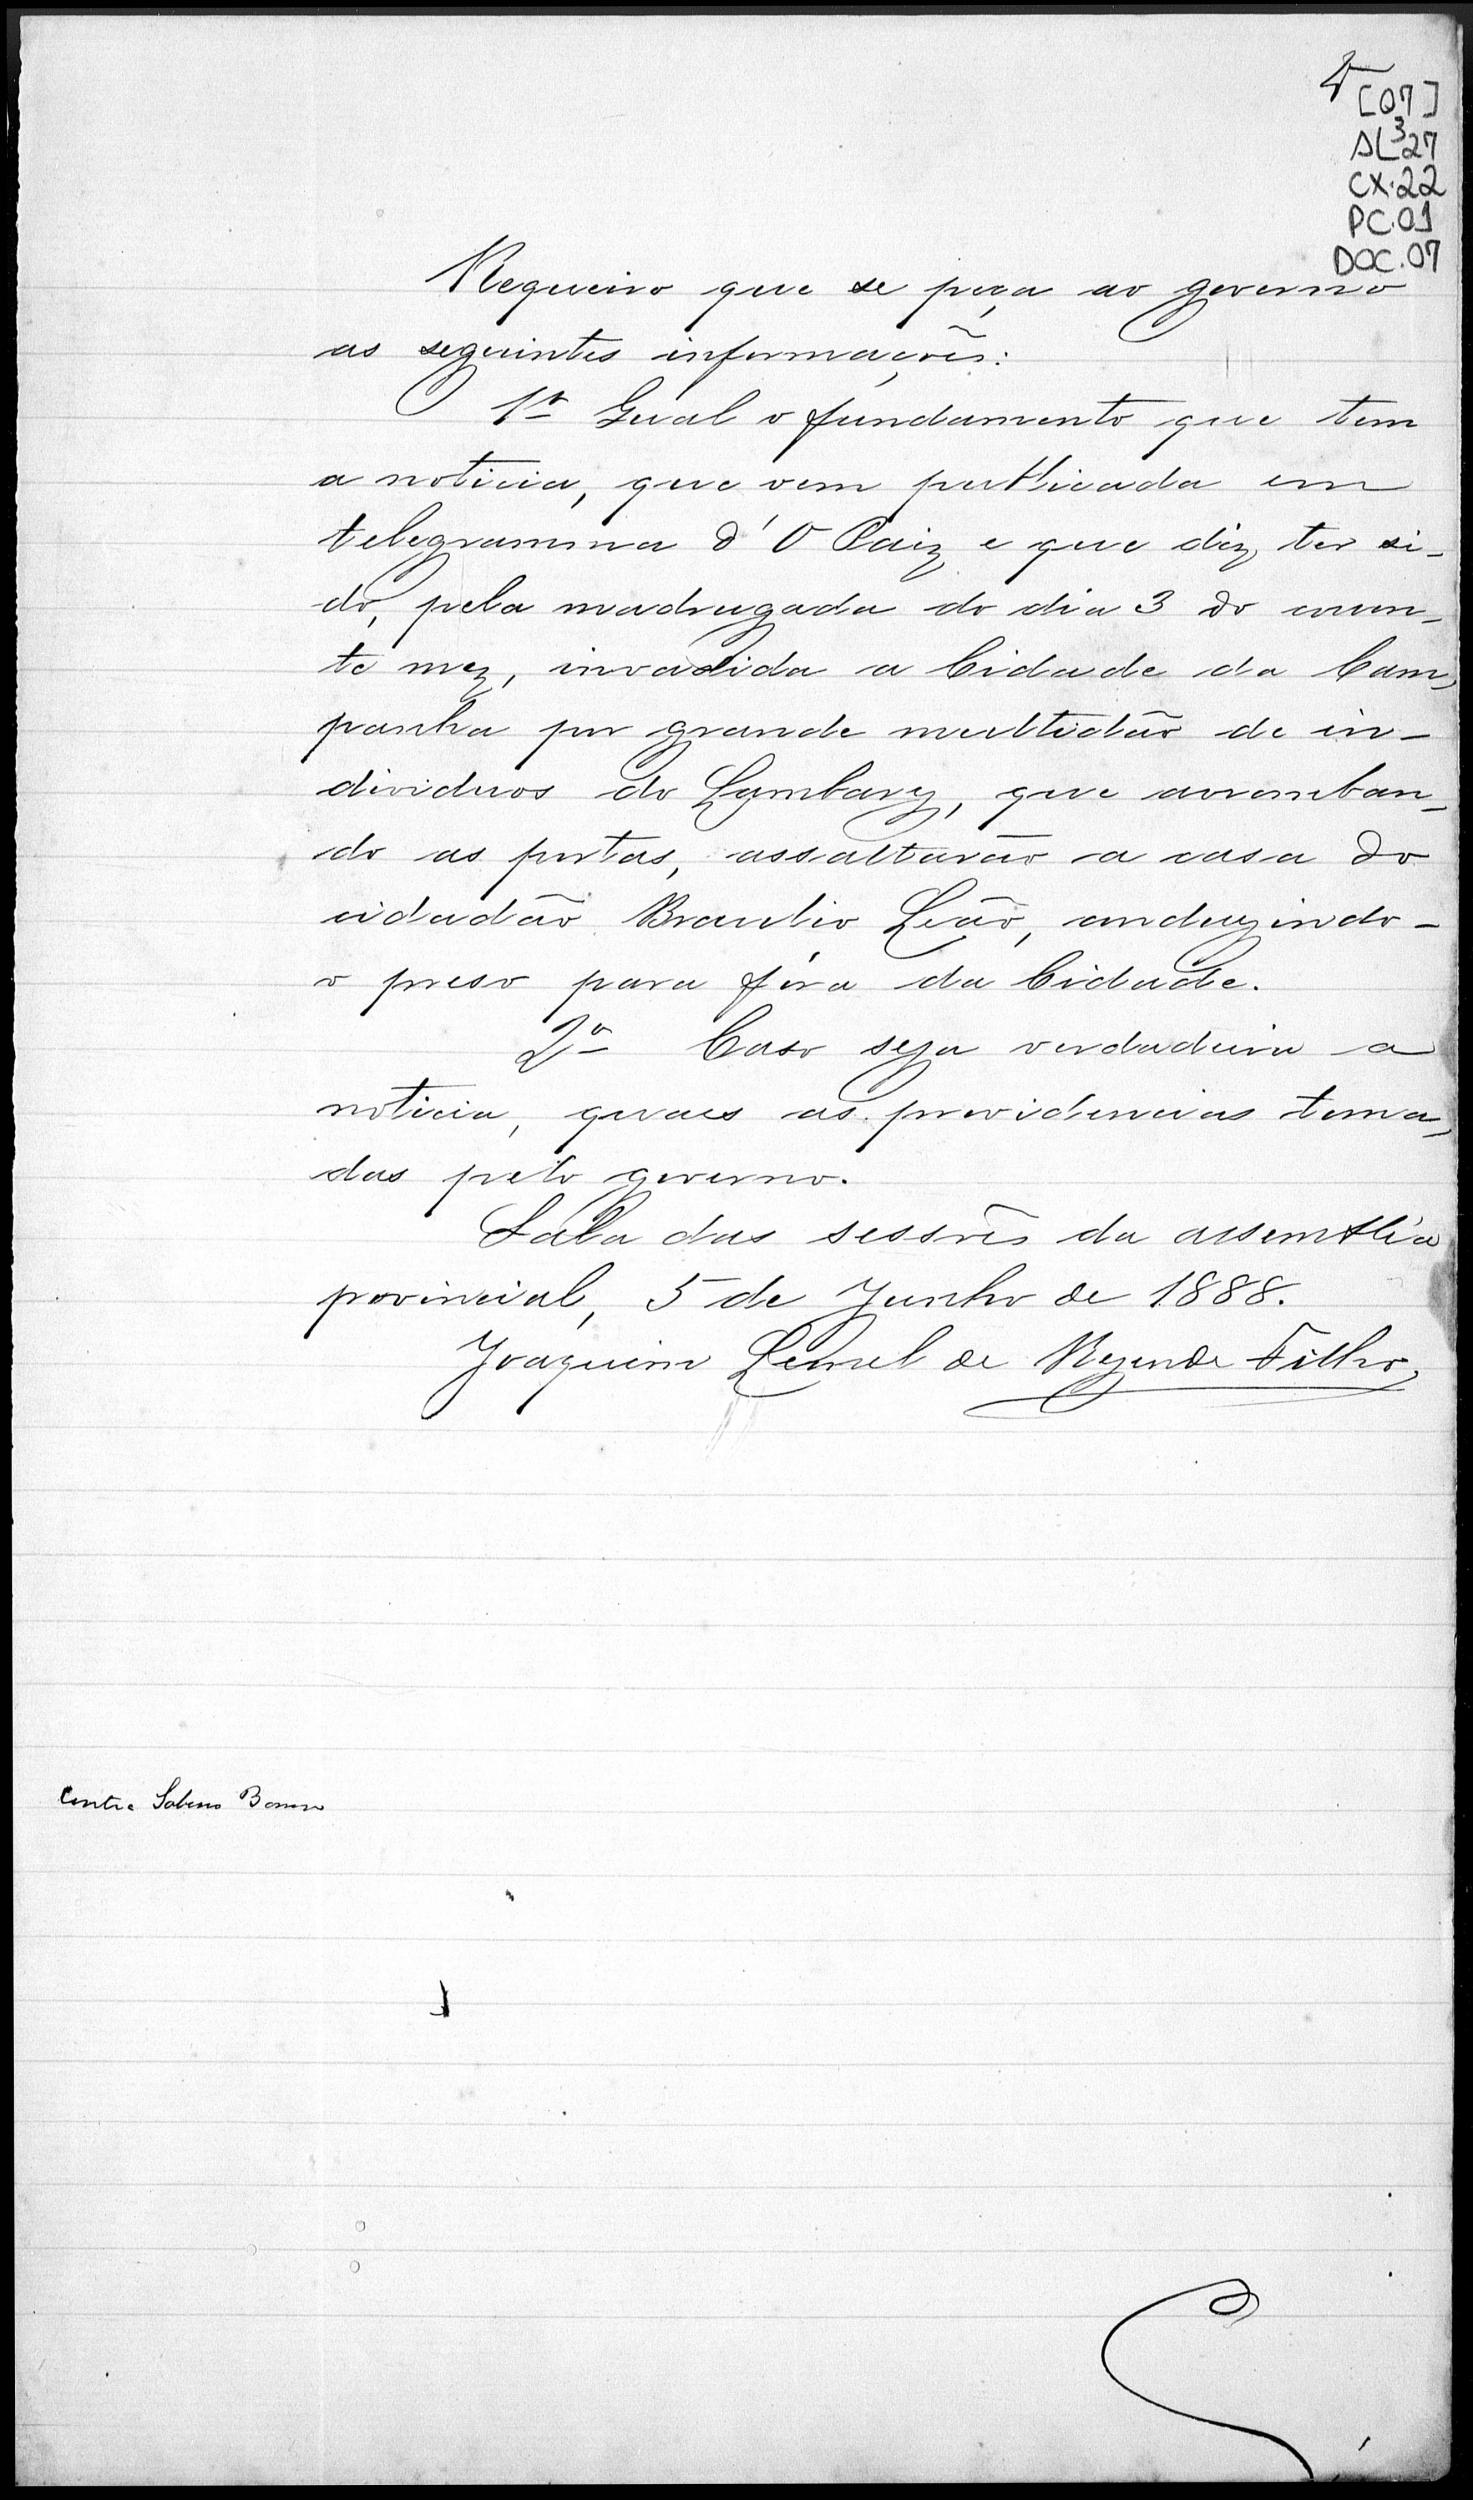 [07]
AL³27
CX.22
PC.01
DOC.07
Requeiro que se peça ao governo
as seguintes informações:
1º Qual o fundamento que tem
a noticia, que vem publicada em
telegramma d'O Paiz e que diz ter si-
do, pela madrugada do dia 3 do corren-
te mez, invadida a Cidade da Cam-
panha por grande multidão de in-
dividuos do Lambary, que arromban-
do as portas, assaltarão a casa do
cidadão Braulio Leão, conduzindo-
o preso para fóra da Cidade.
2º Caso seja verdadeira a
noticia, quaes as providencias toma-
das pelo governo.
Sala das sessões da assembléa
provincial, 5 de Junho de 1888.
Joaquim Leonel de Rezende Filho
Contra Sabino Barroso